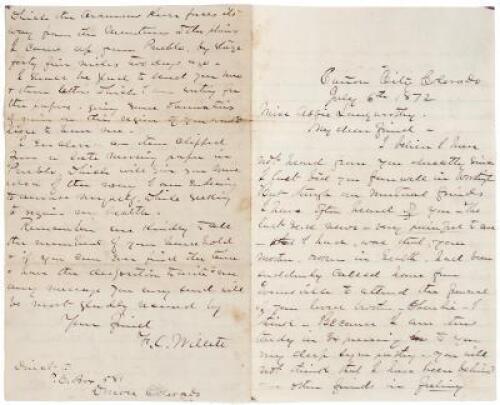 Cañon City Colorado
July 6th 1872
Miss Abbie Langworthy.
My dear friend -
I believe I have
not heard from you directly since
I last bid you farewell in
But through our mutual friends
I have often heard of you - the
last sad news - very painful to me
- that I had, was that your
mother when in health had been
suddenly called home from
to attend the funeral
of your loved brother Charlie - I
Because I am thus
tardy in expressing to you
my deep sympathy - you will
not think that I have been behind
other friends in feeling
Which the Arkansas River forces its
way from the mountains to the plains
I came up from Pueblo, by stage
forty five miles two days ago -
I should be glad to send you one
or three letters which I am writing for
the papers - giving some
of in this region if you would
like to have me.
I enclose an item clipped
from a late morning paper in
Pueblo, which will give you some
idea of the way I am endeavoring
to amuse myself, while seeking
to regain my health.
Remember me kindly to all
the members of your household
& if you can ever find the time
& have the disposition to write me
any message you may send will
be most gladly received by
Your friend
F. C. Willett
Direct to
P.O. Box 581
Denver Colorado